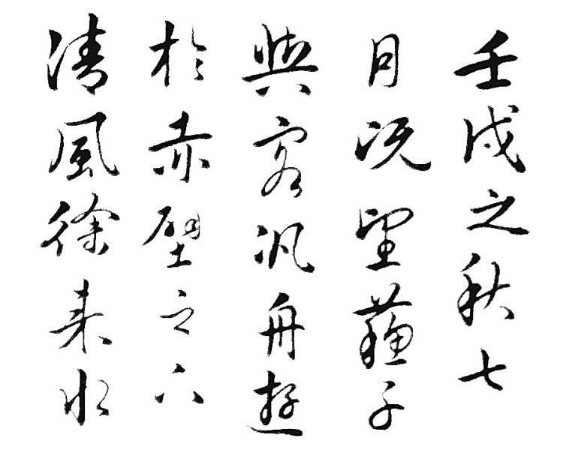 壬戌之秋七
月既望蘇子
與客汎舟遊
於赤壁之下
清風徐來水